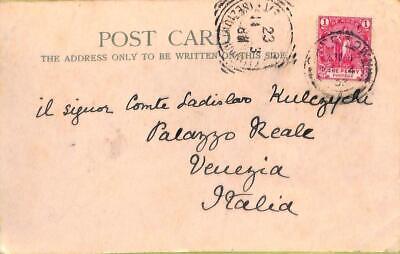 POST CARD
THE ADDRESS ONLY TO BE WRITTEN ON THIS SIDE.
1 1
ONE PENNY
23 3
il signor Comte Ladislao Kulczycki
Palazzo Reale
Venezia
Italia